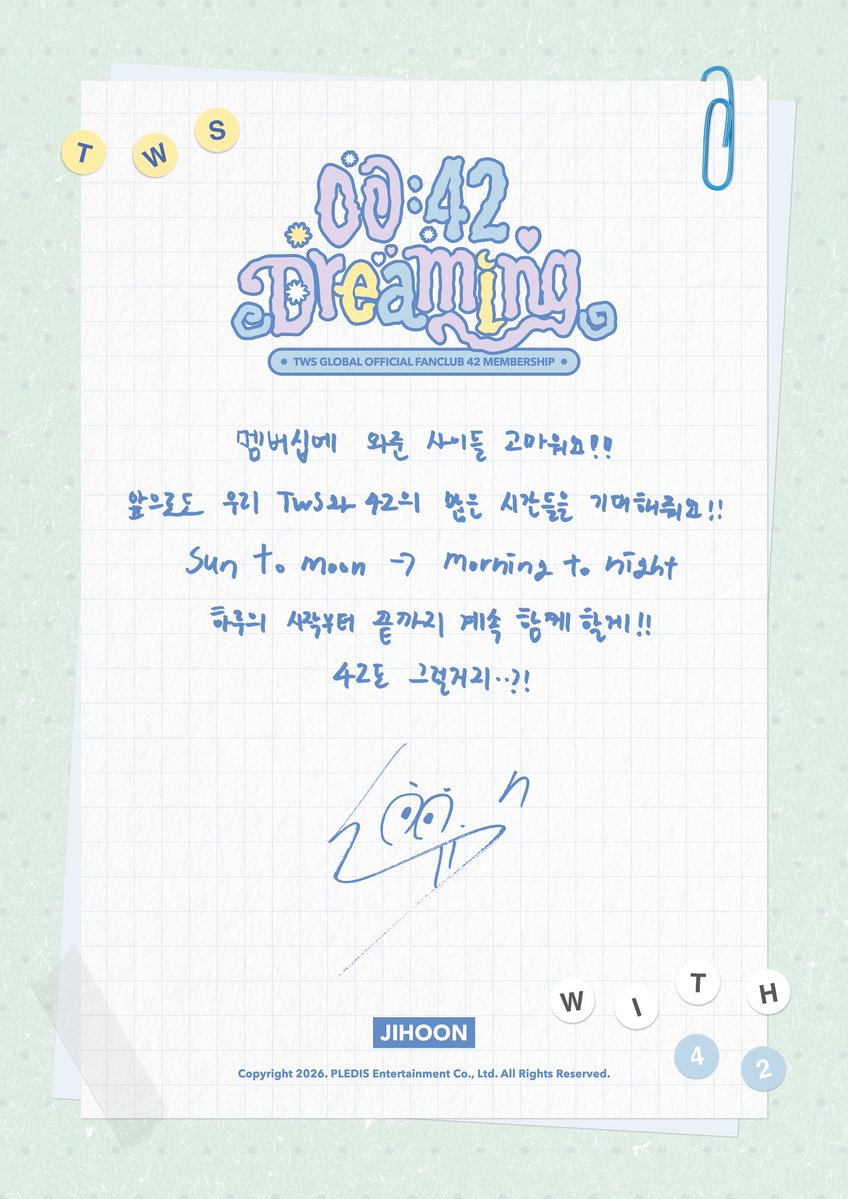 TWS
00:42
Dreaming
TWS GLOBAL OFFICIAL FANCLUB 42 MEMBERSHIP
멤버십에 와준 사이들 고마워요!!
앞으로도 우리 TWS와 42의 많은 시간들을 기대해줘요!!
Sun to moon → Morning to night
하루의 시작부터 끝까지 계속 함께 할게!!
42도 그럴거지..?!
WITH
42
JIHOON
Copyright 2026. PLEDIS Entertainment Co., Ltd. All Rights Reserved.